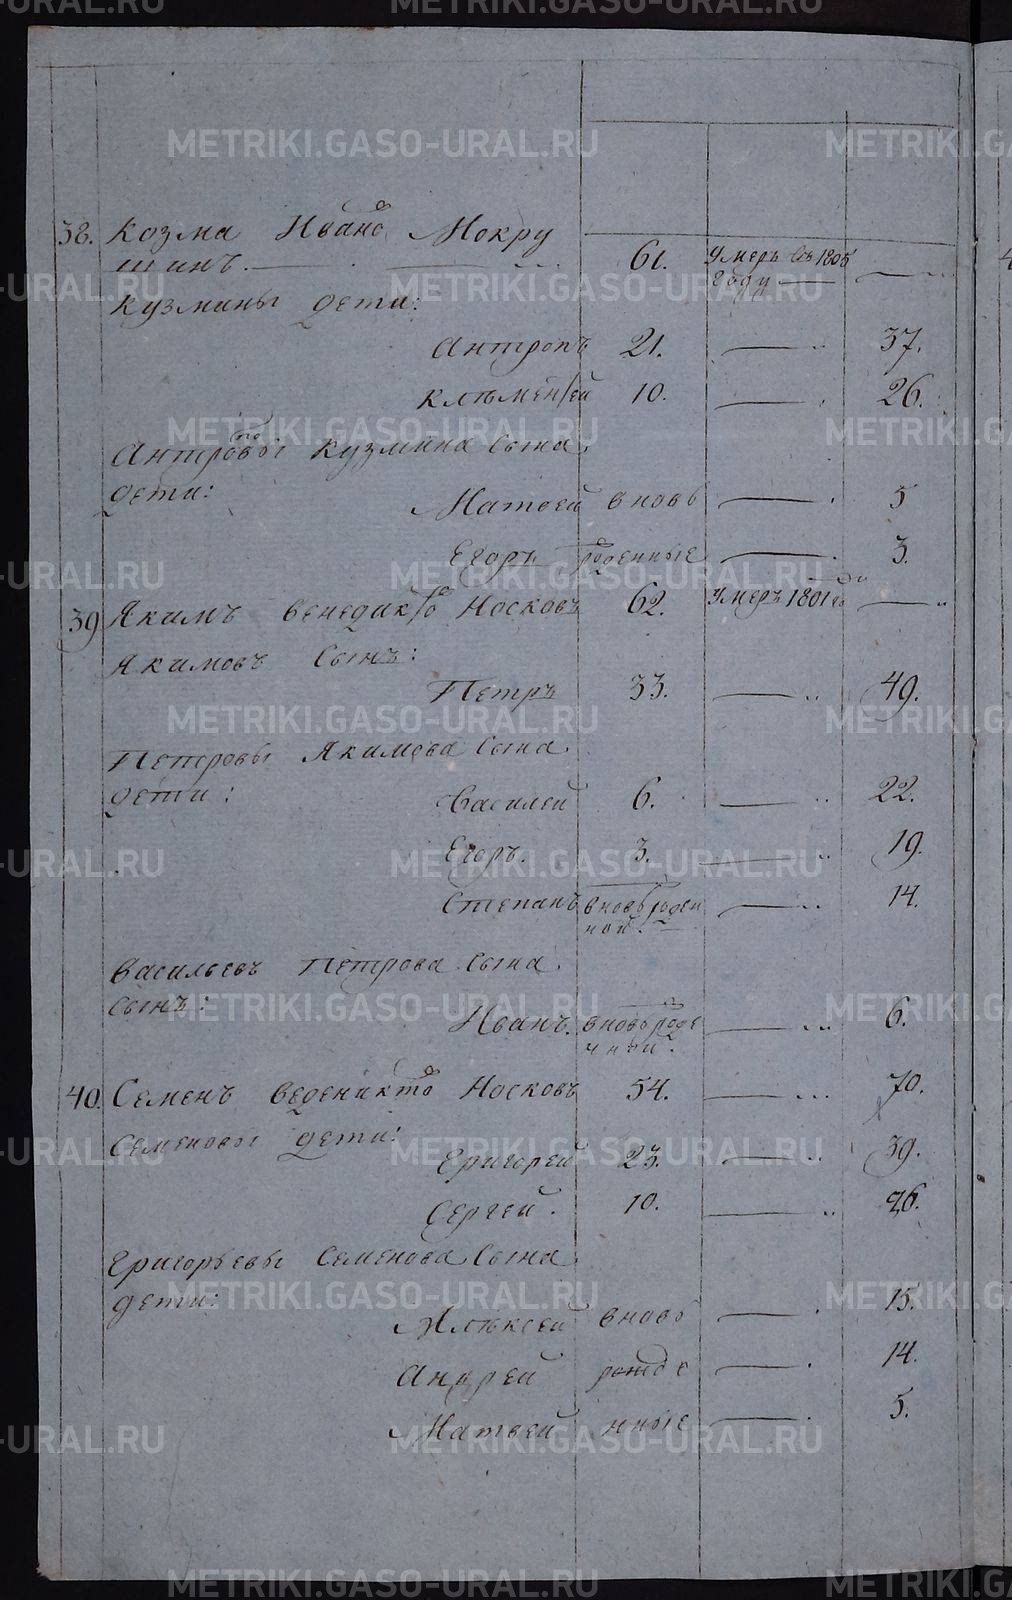 38. Козма Ивано<sup>в</sup> Мокру
шинъ. 61. умеръ въ 1805 году
кузмины дети:
Антропъ 21. 37.
Клѣментей 10. 26.
Антроповы кузмина сына
дети:
Матвей вновь 5
Егоръ роденные 3.
39 Якимъ венедикто<sup>в</sup> Носковъ 62. умеръ 1801 году
Якимовъ сынъ:
Петръ 33. 49.
Петровы Якимова сына
дети:
Василей 6. 22.
Егоръ. 3. 19.
Степанъ вновь роден 14.
ной.
Васильевъ Петрова сына
сынъ:
Иванъ. вновь роде 6.
нной.
40. Семенъ веденикто<sup>в</sup> Носковъ 54. 70.
Семеновы дети:
Григорей 23. 39.
Сергей. 10. 26.
Григорьевы Семенова сына
дети:
Алѣксей вновь 15.
Андрей рожде 14.
Матвей нные 5.
METRIKI.GASO-URAL.RU